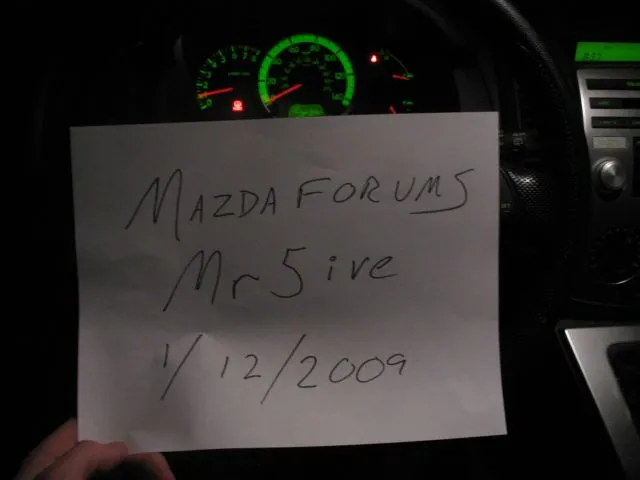 MAZDA FORUMS
Mr5ive
1/12/2009